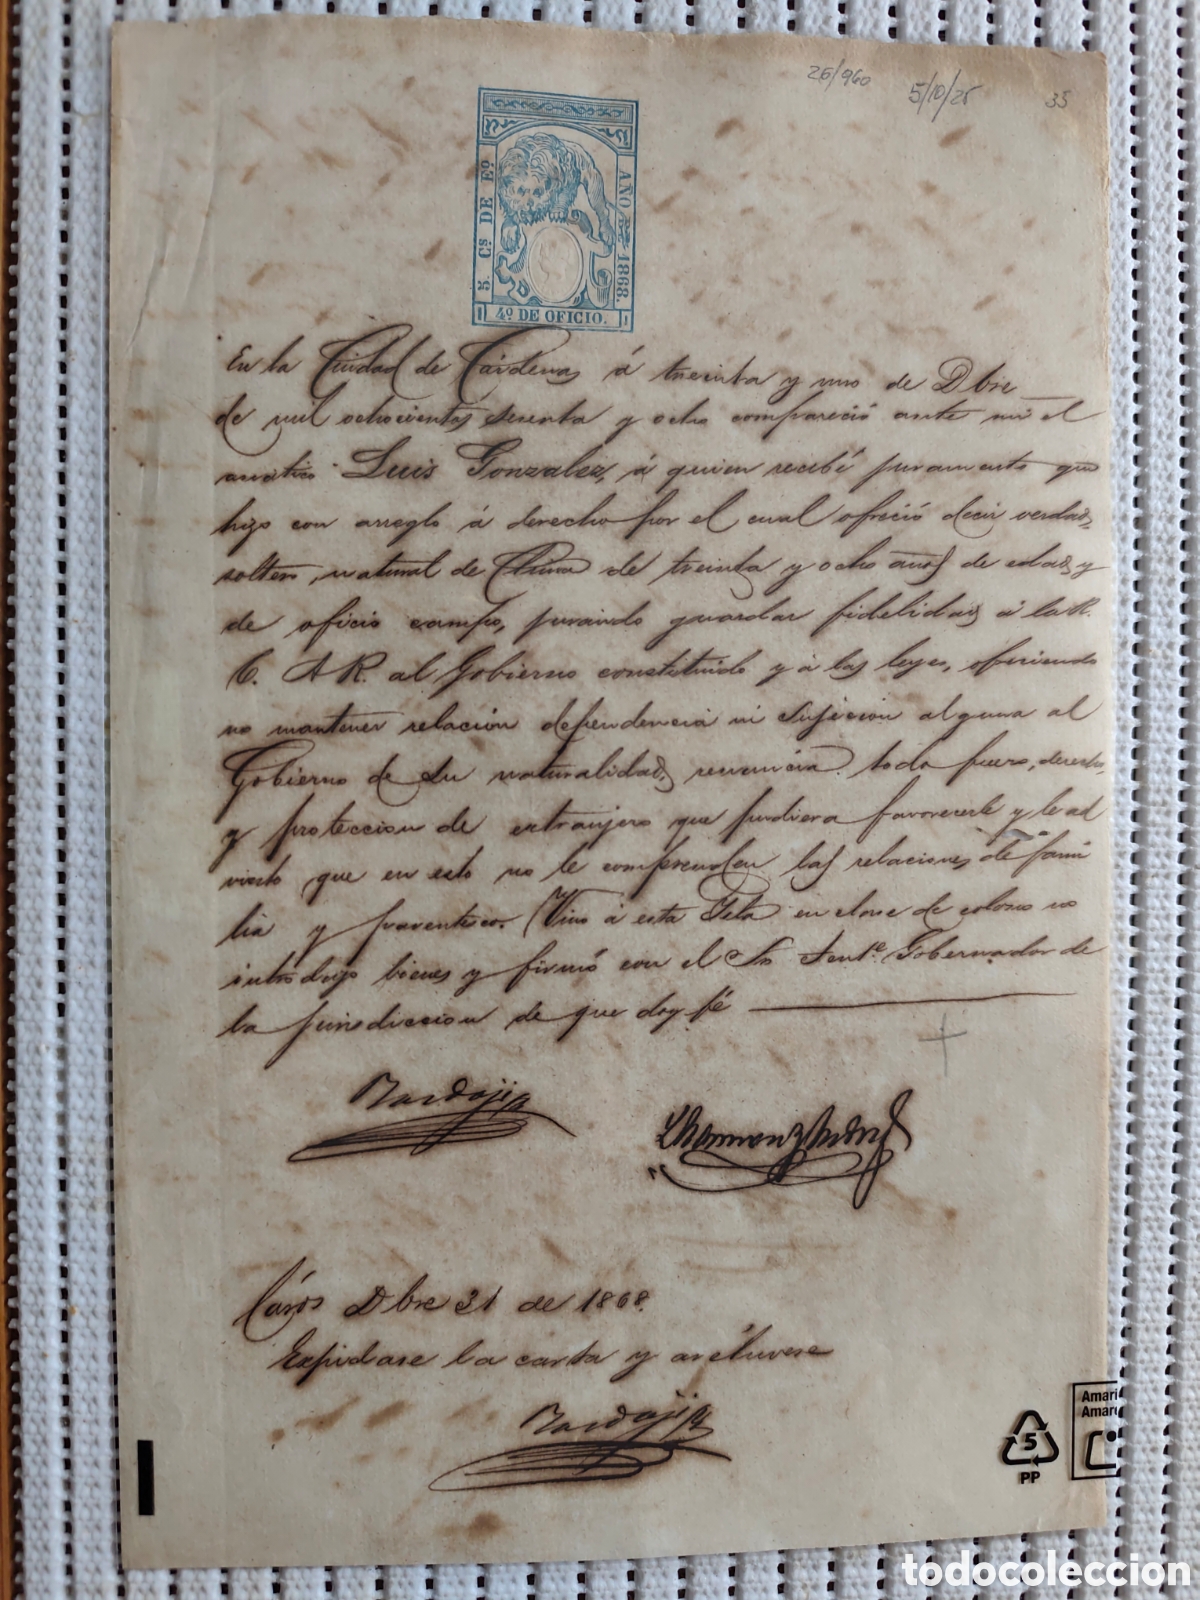 26/960 5/10/25 35
5. Cs DE Eo.
AÑO 1868.
4º DE OFICIO.
En la Ciudad de Cárdenas á treinta y uno de Dbre
de mil ochocientos sesenta y ocho compareció ante mi el
asiático Luis Gonzalez, á quien recibé juramento que
hizo con arreglo á derecho por el cual ofreció decir verdad,
soltero, natural de China de treinta y ocho años de edad, y
de oficio campo, jurando guardar fidelidad á la R.
C. A. R. al Gobierno constituido y á las leyes, ofreciendo
no mantener relación dependencia ni sujecion alguna al
Gobierno de su naturalidad, renuncia todo fuero, derecho,
y proteccion de extranjero que pudiera favorecerle y le ad
virto que en esto no le comprenden las relaciones de fami
lia y parentesco. Vino á esta Ysla en clase de colono no
introdujo bienes y firmó con el Sr Tente. Gobernador de
la jurisdiccion de que doy fé
Bardaji
Cárds Dbre 31 de 1868.
Expidase la carta y archivese
Bardaji
5
PP
todocoleccion